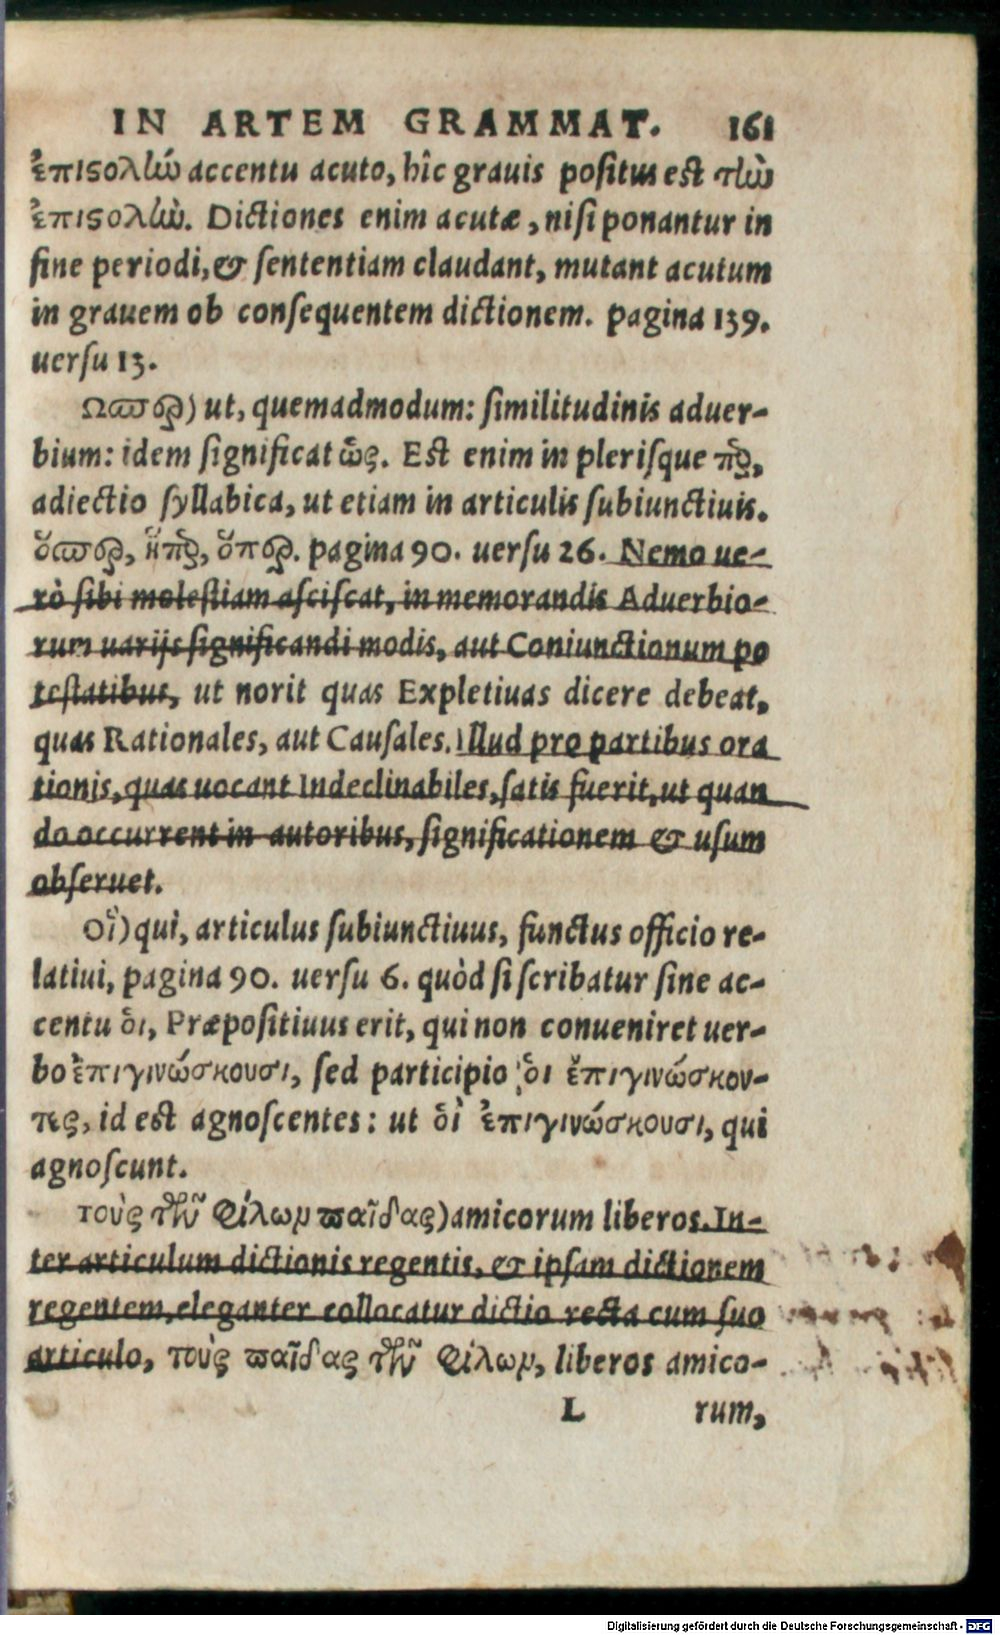 IN ARTEM GRAMMAT. 161
ἐπιϛολὼ accentu acuto, hîc grauis positus est τὼ
ἐπιϛολὼ. Dictiones enim acutæ, nisi ponantur in
fine periodi, & sententiam claudant, mutant acutum
in grauem ob consequentem dictionem. pagina 139.
uersu 13.
Ωσπερ) ut, quemadmodum: similitudinis aduer-
bium: idem significat ὥς. Est enim in plerisque περ,
adiectio syllabica, ut etiam in articulis subiunctiuis.
ὅσπερ, ἥπερ, ὅπερ. pagina 90. uersu 26. Nemo ue-
rò sibi molestiam asciscat, in memorandis Aduerbio-
rum uarijs significandi modis, aut Coniunctionum po
testatibus, ut norit quas Expletiuas dicere debeat,
quas Rationales, aut Causales. Illud pro partibus ora
tionis, quas uocant Indeclinabiles, satis fuerit, ut quan
do occurrent in autoribus, significationem & usum
obseruet.
Οἳ) qui, articulus subiunctiuus, functus officio re-
latiui, pagina 90. uersu 6. quòd si scribatur sine ac-
centu ὁι, Præpositiuus erit, qui non conueniret uer-
bo ἐπιγινώσκουσι, sed participio ὁι ἐπιγινώσκον-
τες, id est agnoscentes: ut ὁὶ ἐπιγινώσκουσι, qui
agnoscunt.
τοὺς τῶν φίλων παῖδας) amicorum liberos. In-
ter articulum dictionis regentis, & ipsam dictionem
regentem, eleganter collocatur dictio recta cum suo
articulo, τοὺς παῖδας τῶν φίλων, liberos amico-
L rum,
Digitalisierung gefördert durch die Deutsche Forschungsgemeinschaft - DFG